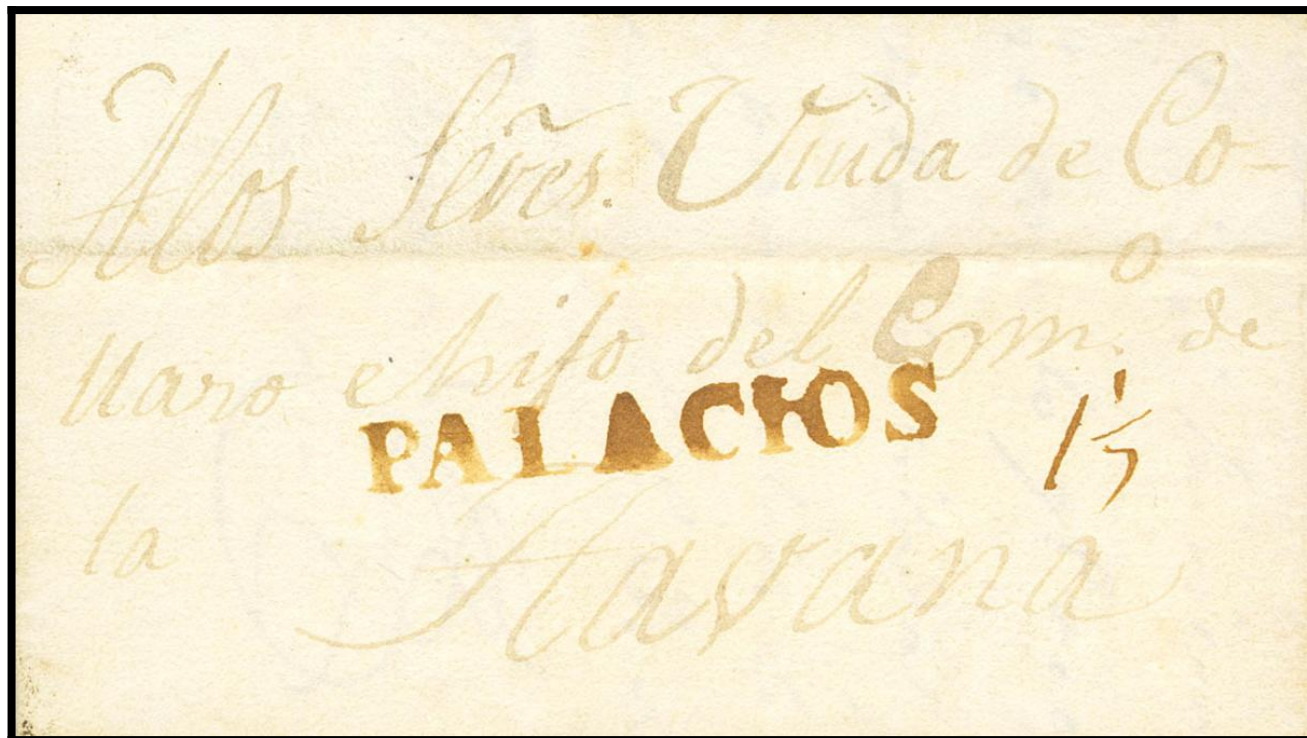 A los Señres. Viuda de Co-
llazo e hijo del Comº. de
PALACIOS
1½
la Havana